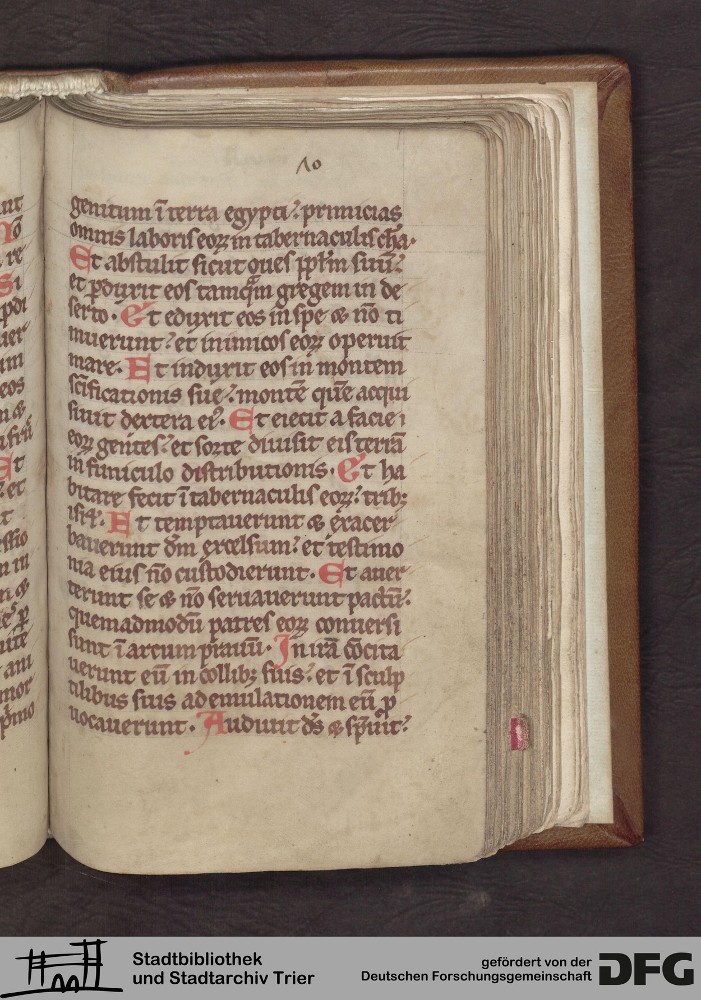 10
genitum ī terra egypti: primicias
omnis laboris eoꝝ in tabernaculis cha.
Et abstulit sicut oues pp̄lm suū:
et ꝑduxit eos tamq̄m gregem in de
serto. Et eduxit eos in spe & nō ti
muerunt: et inimicos eoꝝ operuit
mare. Et induxit eos in montem
sc̄ificationis sue: montē quē acqui
siuit dextera eiꝰ. Et eiecit a facie
eoꝝ gentes: et sorte diuisit eis terrā
in funiculo distributionis. Et ha
bitare fecit ī tabernaculis eoꝝ: tribꝫ
isrl̄. Et temptauerunt & exacer
bauerunt dm̄ excelsum: et testimo
nia eius nō custodierunt. Et auer
terunt se & nō seruauerunt pactū:
quemadmodū patres eoꝝ conuersi
sunt ī arcum prauū. In irā cōcita
uerunt eū in collibꝫ suis: et ī sculp
tilibus suis ad emulationem eū ꝓ
uocauerunt. Audiuit ds̄ & sp̄uit:
Stadtbibliothek
und Stadtarchiv Trier
gefördert von der
Deutschen Forschungsgemeinschaft
DFG